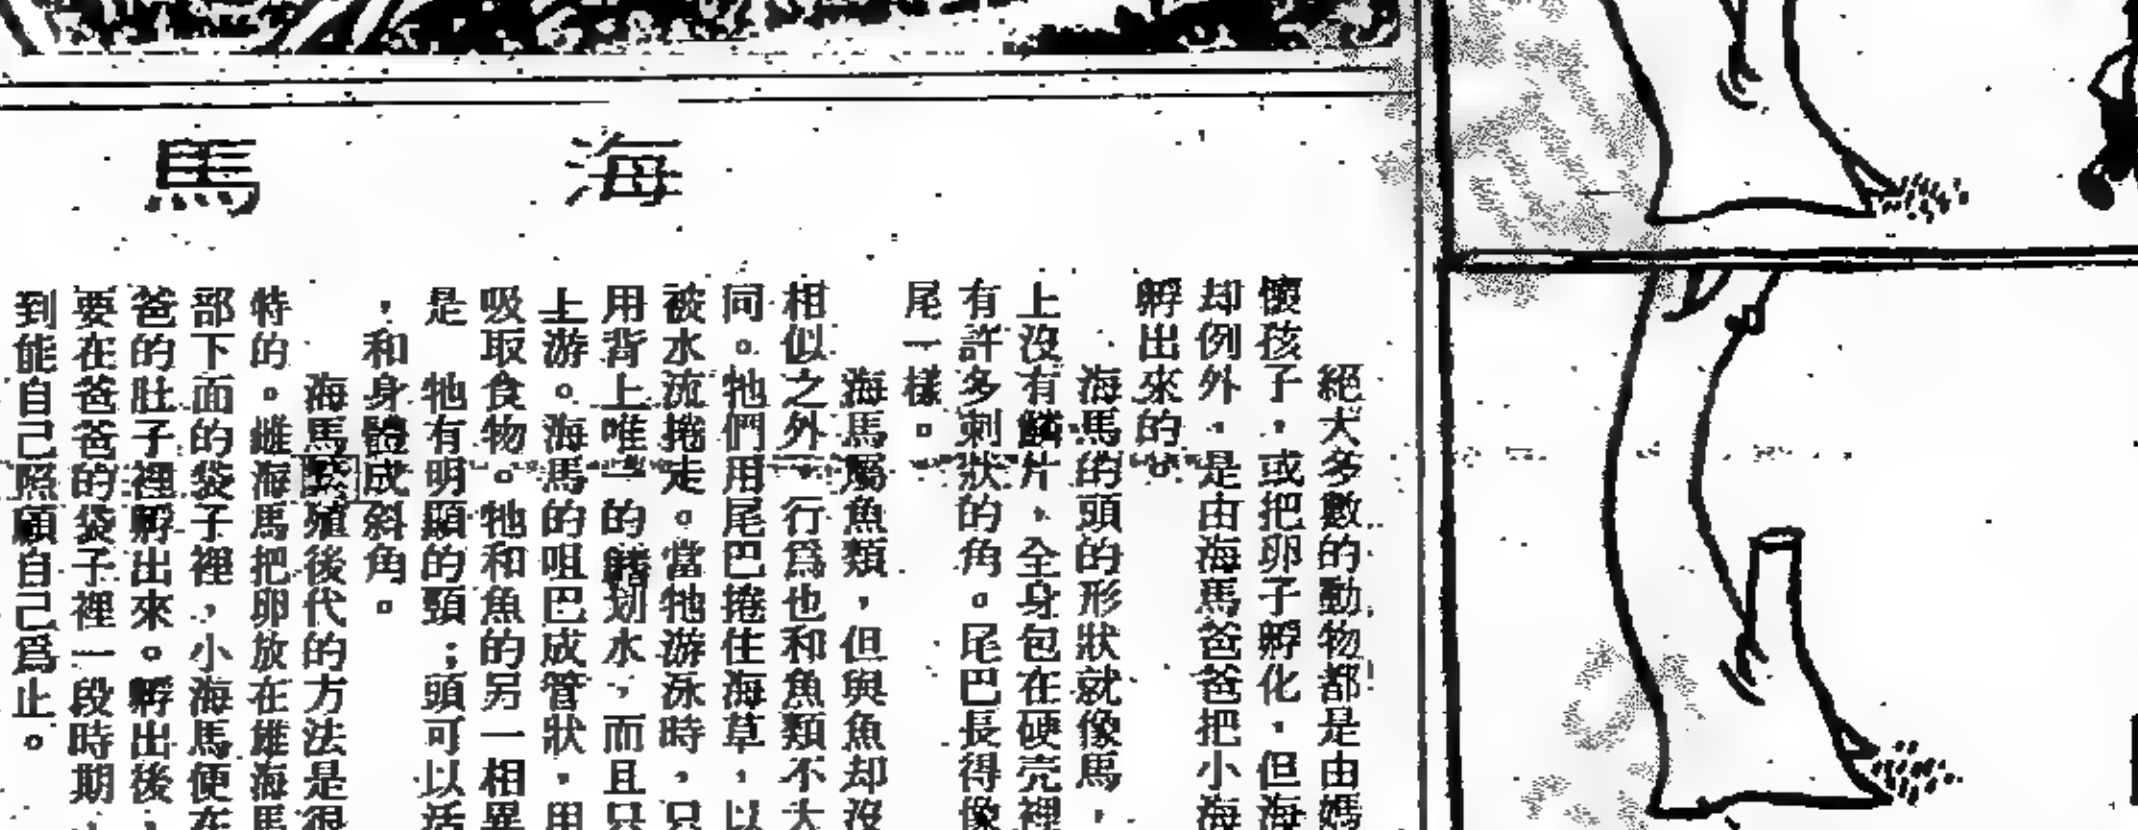 海馬
絕大多數的動物都是由媽
懷孩子，或把卵子孵化，但海
却例外，是由海馬爸爸把小海
孵出來的。
海馬的頭的形狀就像馬，
上沒有鱗片，全身包在硬壳裡
有許多刺狀的角。尾巴長得像
尾一樣。
海馬屬魚類，但與魚却沒
相似之外，行爲也和魚類不大
同。牠們用尾巴捲住海草，以
被水流捲走。當牠游泳時，只
用背上唯一的鰭划水，而且只
上游。海馬的咀巴成管狀，用
吸取食物。牠和魚的另一相異
是 牠有明顯的頸；頭可以活
，和身體成斜角。
海馬繁殖後代的方法是很
特的。雌海馬把卵放在雄海馬
部下面的袋子裡，小海馬便在
爸的肚子裡孵出來。孵出後，
要在爸爸的袋子裡一段時期，
到能自己照顧自己爲止。